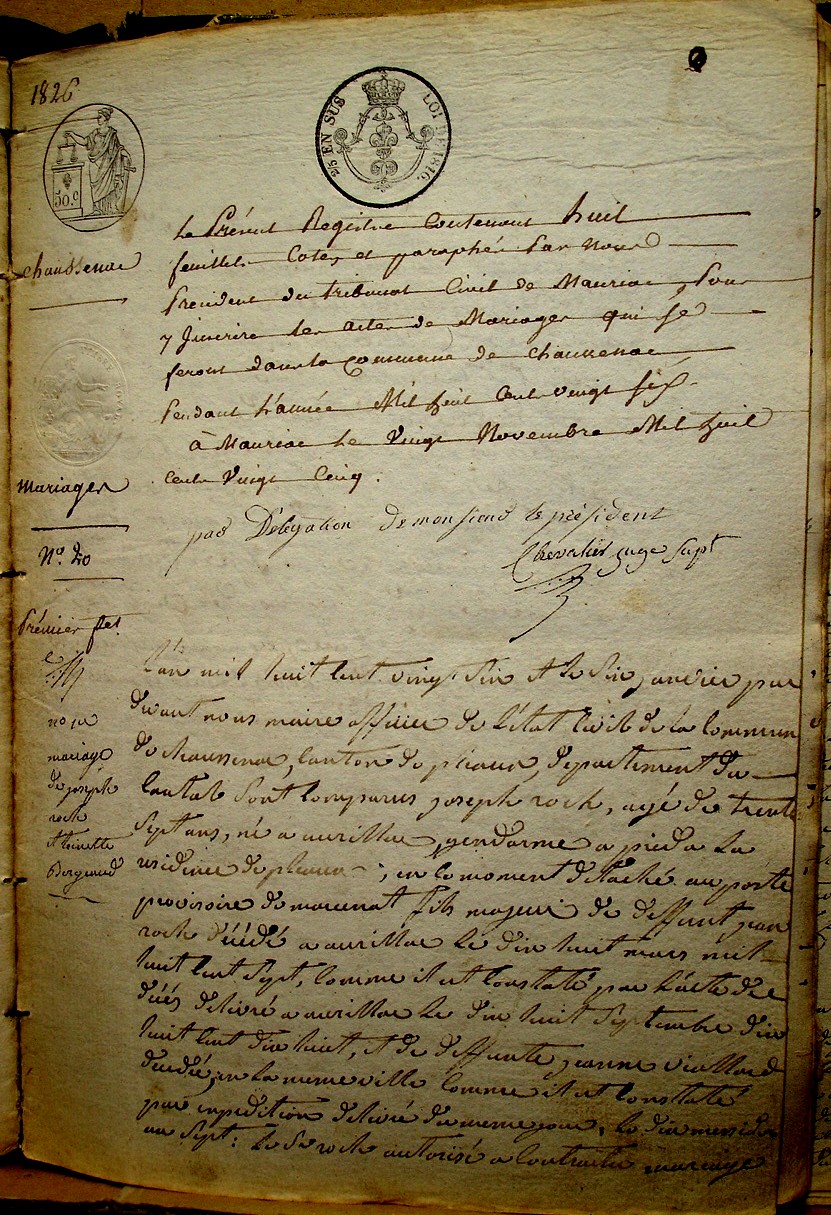 1826
25 EN SUS LOI DE 1816.
50.c
Chaussenac
Le Présent Registre Contenant huit
feuillets Cotés et paraphés Par Nous
Président du tribunal Civil de Mauriac, Pour
y Inscrire les actes de Mariages qui se
feront dans la Commune de Chaussenac
Pendant L'année Mil huit Cent vingt six
à Mauriac Le Vingt Novembre Mil huit
Cent Vingt Cinq.
Mariages
N.° 20
par Délégation de monsieur le président
Chevalier juge Supt
Prémier fet.
n° 1er
mariage
de joseph
rock
et toinette
Bergeaud
L'an mil huit cent vingt six et le six janvier par
devant nous maire officier de l'état civil de la commune
de chaussenac, canton de pleaux, département du
cantal sont comparus joseph rock, agé de trente
sept ans, né a aurillac gendarme a pied a la
residence de pleaux, en ce moment détaché au poste
provisoire de fils majeur de deffunt jean
rock décédé a aurillac le dix huit mars mil
huit cent sept, comme il est constaté par l'acte de
décés délivré a aurillac le dix huit septembre dix
huit cent dix huit, et de deffunte jeanne viallard
décédée en la meme ville comme il est constaté
par expedition délivré du meme jour, le dix messidor
an sept: le Sr rock autorisé a contracter mariage